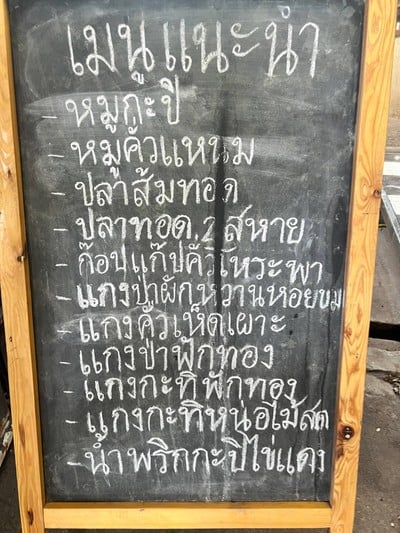 เมนูแนะนำ
- หมูกะปิ
- หมูคั่วแหนม
- ปลาส้มทอด
- ปลาทอด 2 สหาย
- ก๊อปแก๊ปคั่วโหระพา
- แกงป่าผักหวานหอยขม
- แกงคั่วเห็ดเผาะ
- แกงป่าฟักทอง
- แกงกะทิฟักทอง
- แกงกะทิหน่อไม้สด
- น้ำพริกกะปิไข่แดง